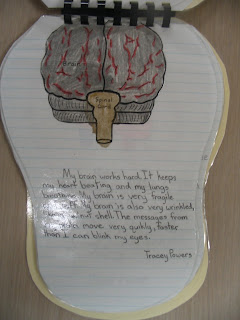 Brain
Spinal
Cord
My brain works hard. It keeps
my heart beating and my lungs
breathing. My brain is very fragile
My brain is also very wrinkled,
nut shell. The messages from
move very quickly, faster
than I can blink my eyes.
Tracey Powers